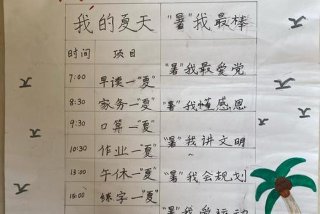 我的夏天 "暑"我最棒
时间 项目
7:00 早读一"夏" "暑"我最爱党
8:30 家务一"夏" "暑"我懂感恩
9:30 口算一"夏"
10:30 作业一"夏" "暑"我讲文明
13:00 午休一"夏" "暑"我会规划
15:00 练字一"夏"